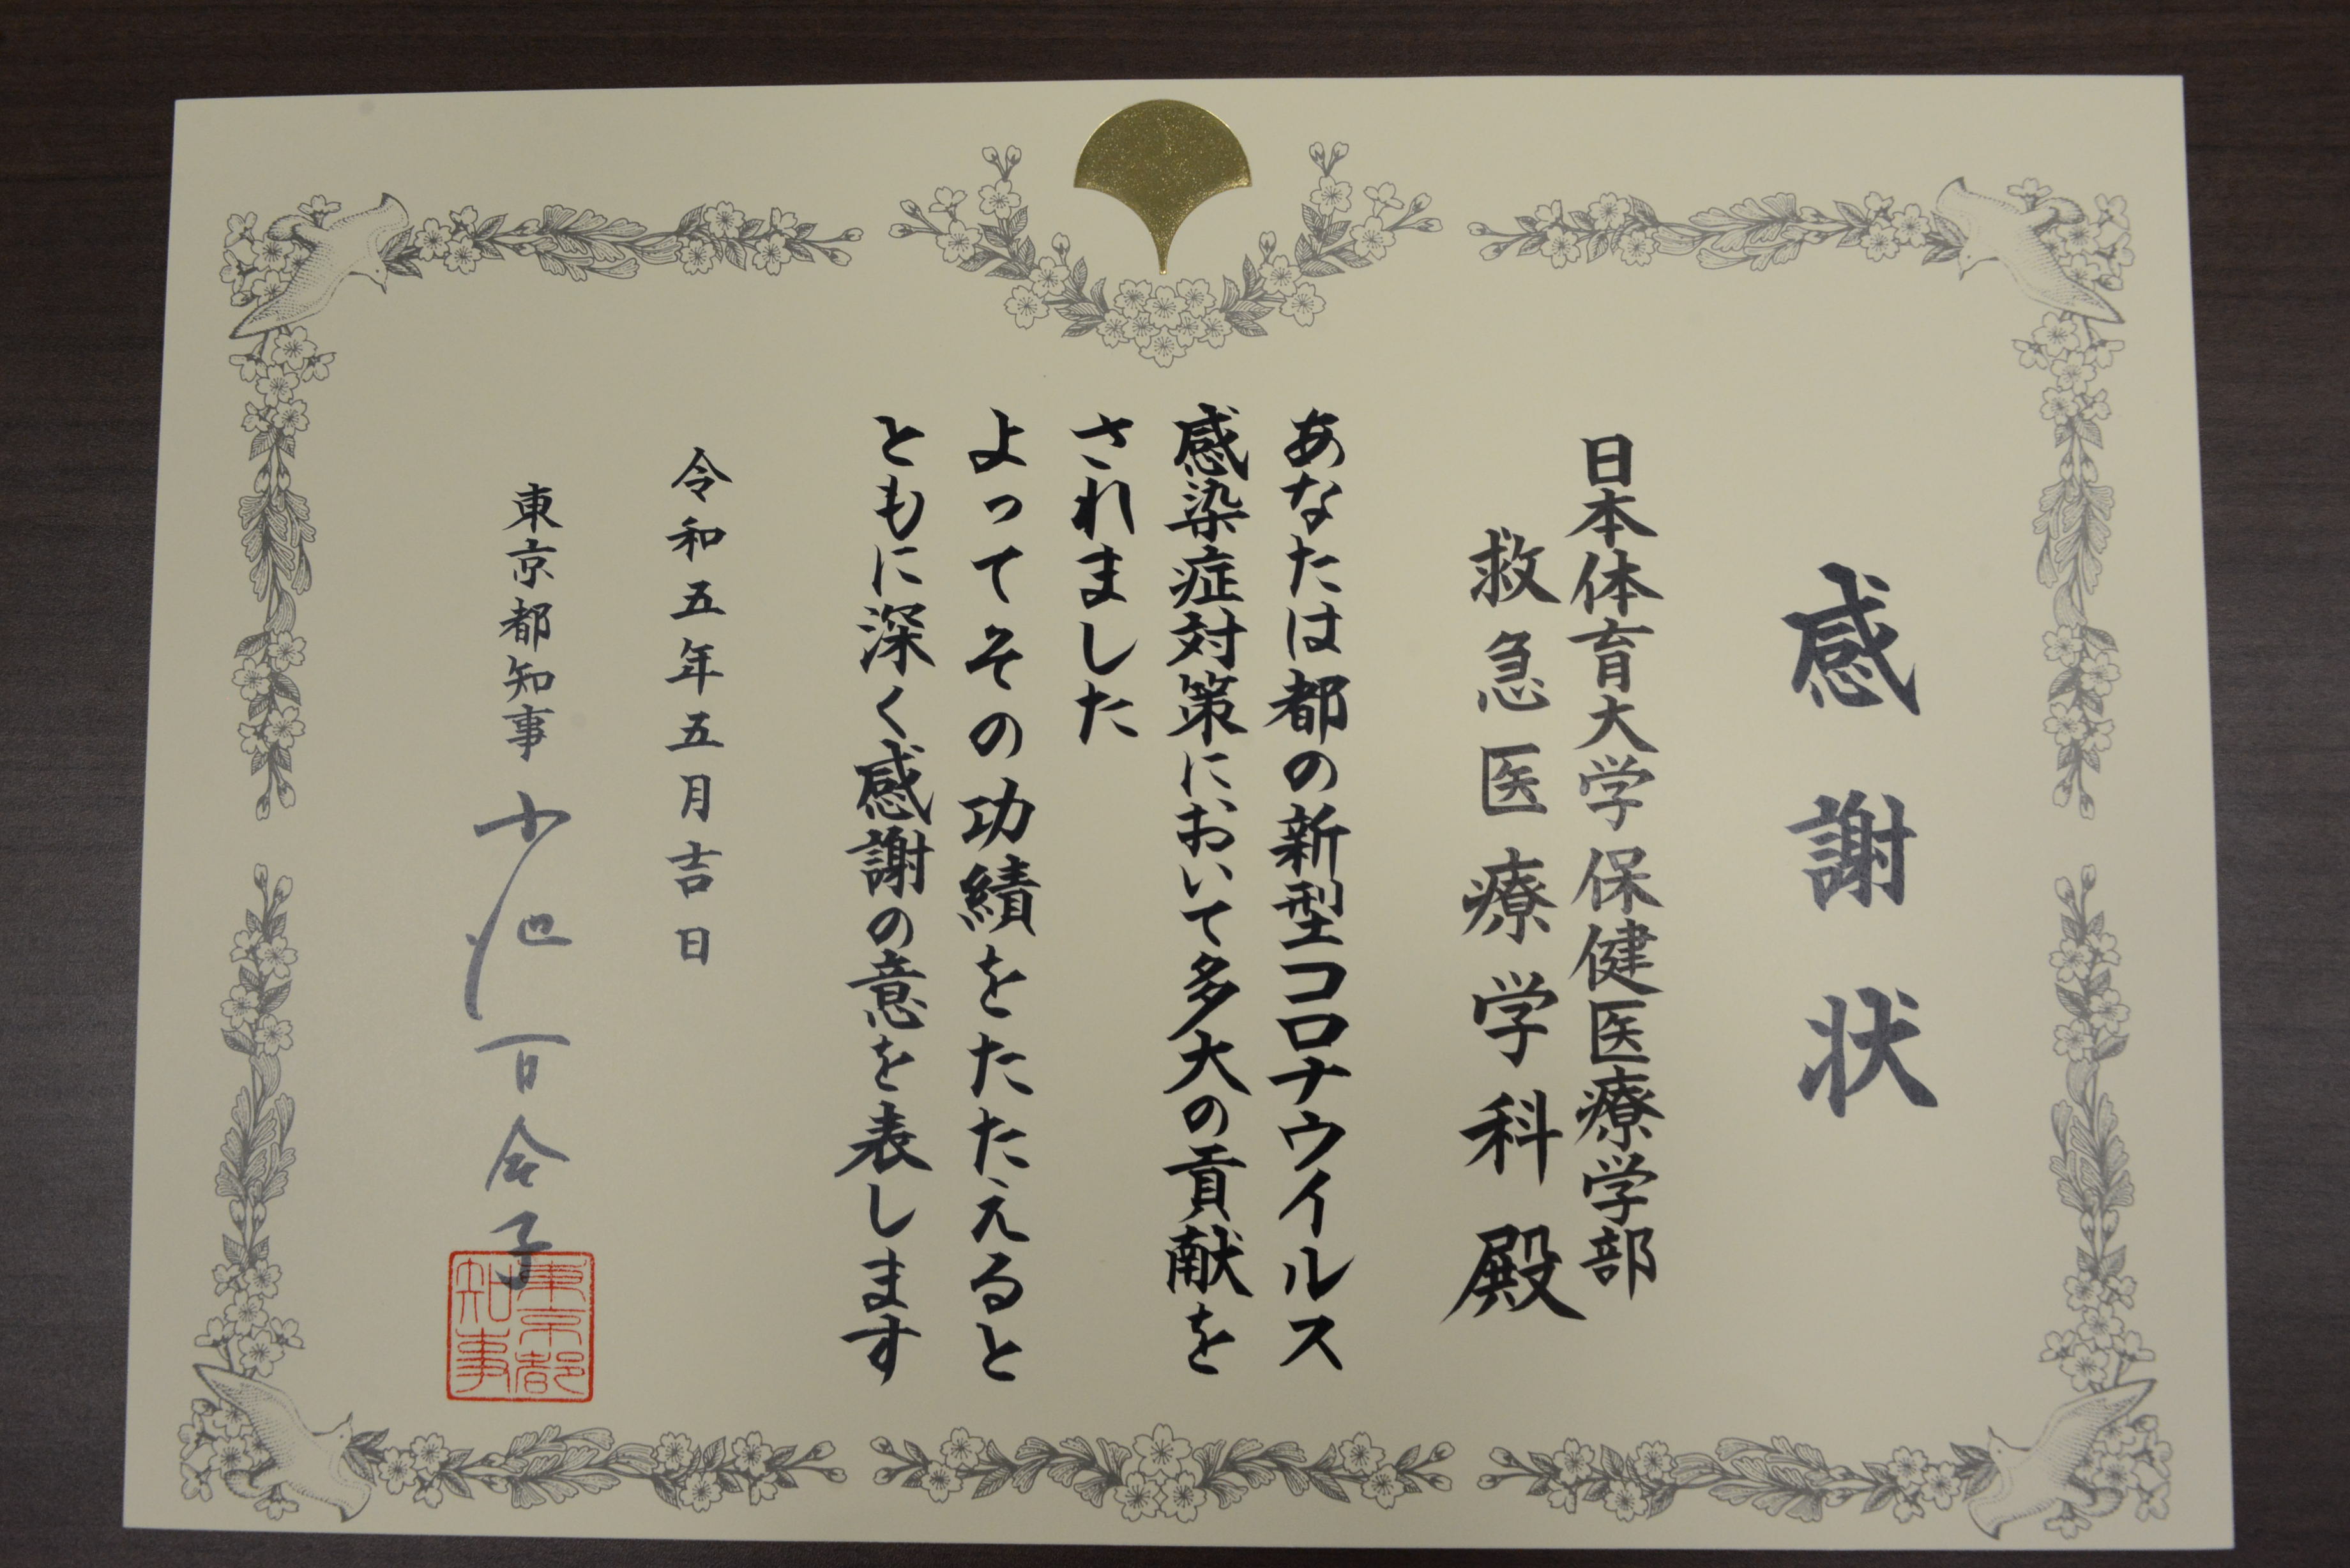 感謝状
日本体育大学保健医療学部
救急医療学科殿
あなたは都の新型コロナウイルス
感染症対策において多大の貢献を
されました
よってその功績をたたえると
ともに深く感謝の意を表します
令和五年五月吉日
東京都知事 小池百合子
東京都
知事